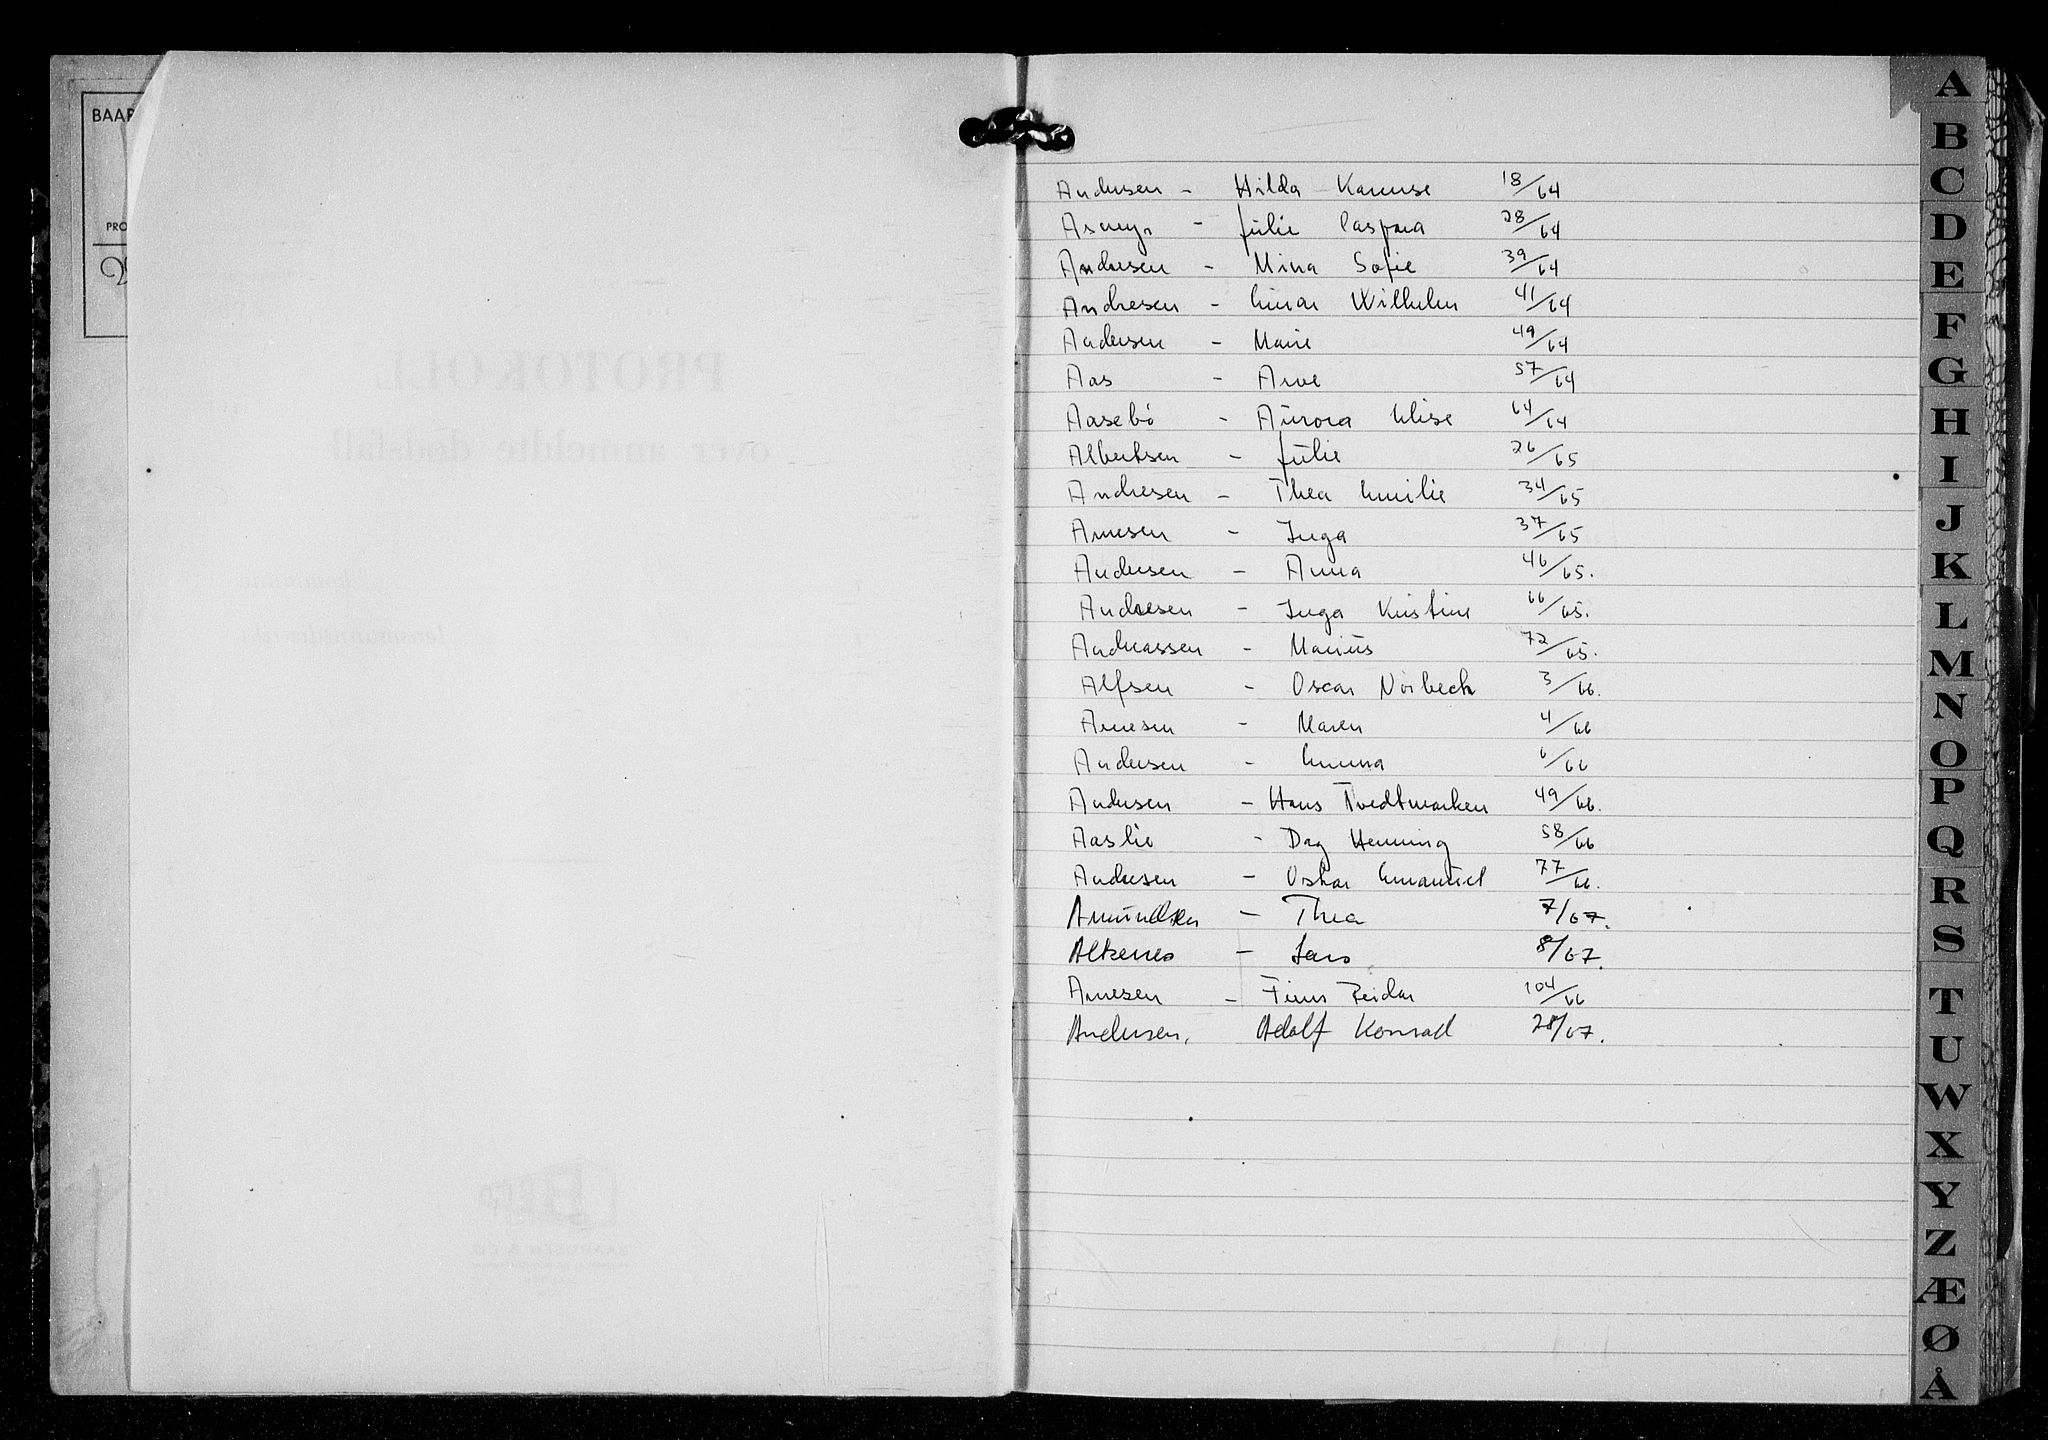 BAAR
PRO
PROTOKOLL
over anmeldte dødsfall
kommune
lensmannsdistrikt
Andersen - Hilda Karense 18/64
Asmyr - Julie Caspara 28/64
Andresen - Mina Sofie 39/64
Andresen - Einar Wilhelm 41/64
Andersen - Marie 49/64
Aas - Arve 57/64
Aasebö - Aurora Elise 64/64
Albertsen - Julie 26/65
Andresen - Thea Emilie 34/65
Arnesen - Inga 37/65
Andersen - Anna 46/65.
Andresen - Inga Kristine 66/65.
Andreassen - Marius 72/65.
Alfsen - Oscar Norbech 3/66.
Arnesen - Maren 4/66
Andersen - Emma 6/66
Andersen - Hans Tvedtmarken 49/66.
Aaslie - Dag Henning 58/66
Andresen - Oskar Emanuel 77/66.
Amundsen - Thea 7/67.
Alkenes - Lars 8/67.
Arnesen - Finn Reidar 104/66
Andersen, Adolf Konrad 28/67.
A
B
C
D
E
F
G
H
I
J
K
L
M
N
O
P
Q
R
S
T
U
W
X
Y
Z
Æ
Ø
Å